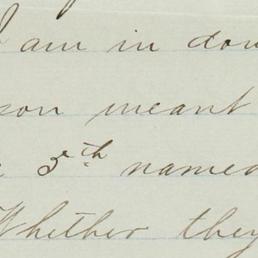 I am in dou
son meant
5th named
Whether they